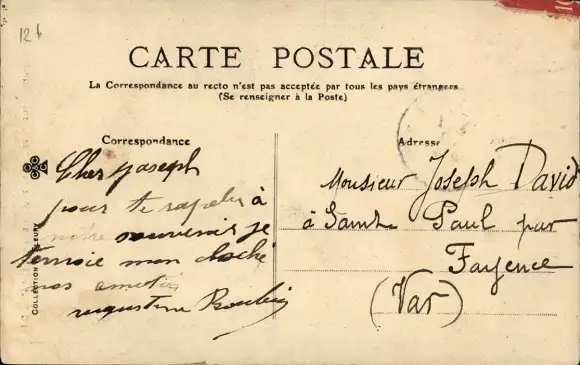 12b
CARTE POSTALE
La Correspondance au recto n'est pas acceptée par tous les pays étrangers
(Se renseigner à la Poste)
Correspondance
Adresse
Cher Joseph
pour te rapeler à
notre souvenir je
tenvoie mon cloché
nos amitiés
augustin
Monsieur Joseph David
à Saint Paul par
Fayence
(Var)
COLLECTION